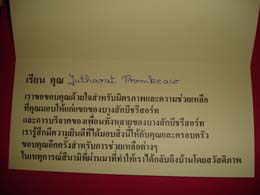 เรียน คุณ Jutharat Prombeaw
เราขอขอบคุณด้วยใจสำหรับมิตรภาพและความช่วยเหลือ
ที่คุณมอบให้แก่แขกของบางสักบีชรีสอร์ท
และการบริจาคของเพื่อนทั้งหลายของบางสักบีชรีสอร์ท
เรารู้สึกมีความยินดีที่ได้มอบสิ่งนี้ให้กับคุณและครอบครัว
ขอบคุณอีกครั้งสำหรับการช่วยเหลือต่างๆ
ในเหตุการณ์สึนามิที่ผ่านมาที่ทำให้เราได้กลับถึงบ้านโดยสวัสดิภาพ